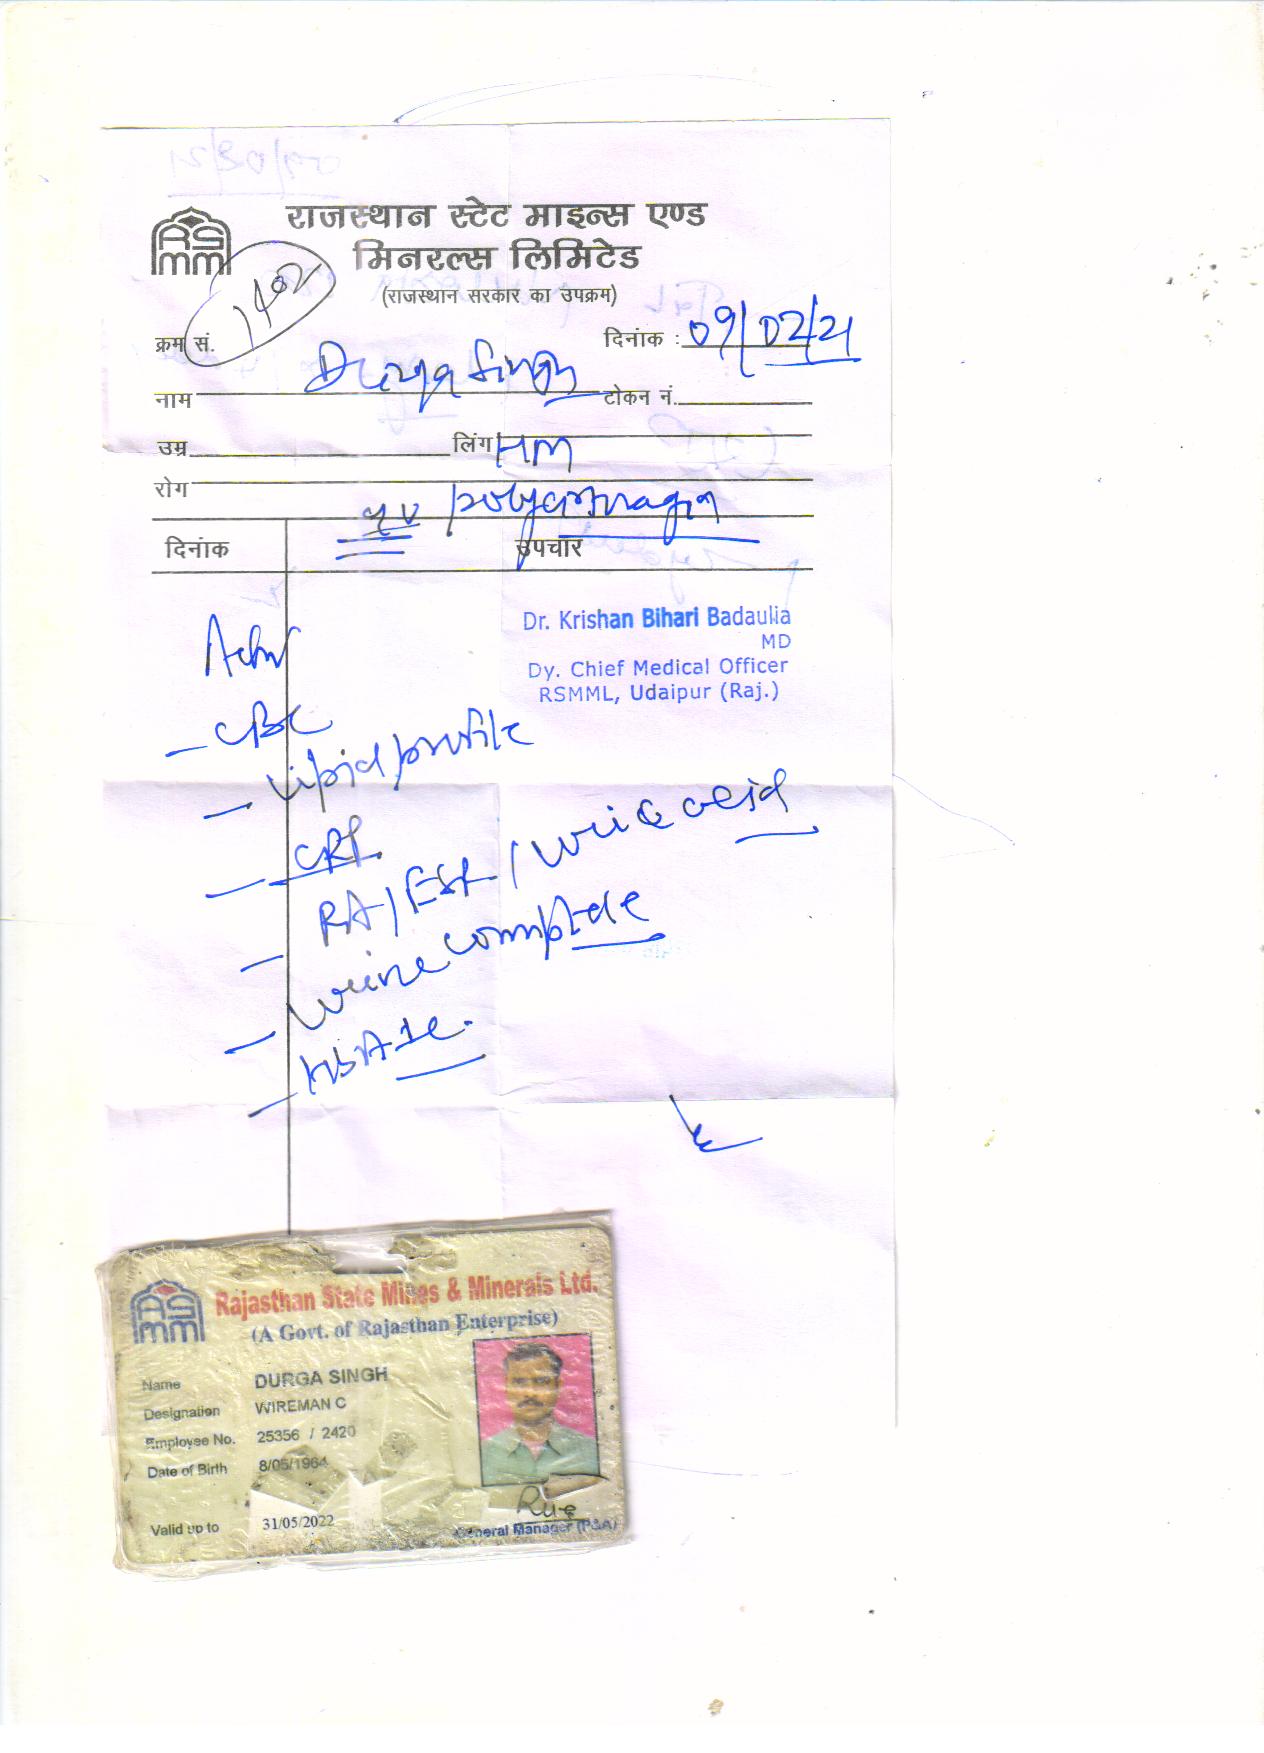 राजस्थान स्टेट माइन्स एण्ड
मिनरल्स लिमिटेड
(राजस्थान सरकार का उपक्रम)
RS
mm
1402
क्रम सं. दिनांक : 09/02/21
नाम Durga Singh टोकन नं.
उम्र लिंग HM
रोग polyarthralgia
दिनांक उपचार
Dr. Krishan Bihari Badaulia
MD
Dy. Chief Medical Officer
RSMML, Udaipur (Raj.)
Adv
- CBC
- Lipid profile
- CRP
- RA/ESR/Uric acid
- Urine complete
- HbA1c.
RS
mm
Rajasthan State Mines & Minerals Ltd.
(A Govt. of Rajasthan Enterprise)
Name DURGA SINGH
Designation WIREMAN C
Employee No. 25356 / 2420
Date of Birth 8/05/1964
Valid up to 31/05/2022
General Manager (P&A)